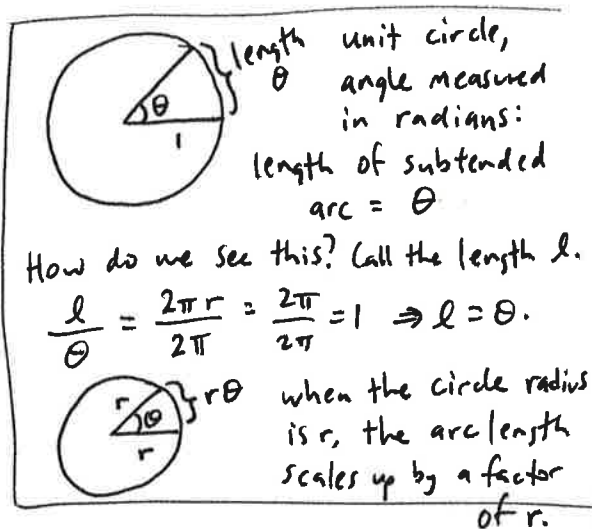 length unit circle,
θ angle measured
θ in radians:
1
length of subtended
arc = θ
How do we see this? Call the length l.
l/θ = 2πr/2π = 2π/2π = 1 ⇒ l = θ.
r θ rθ when the circle radius
r is r, the arc length
scales up by a factor
of r.